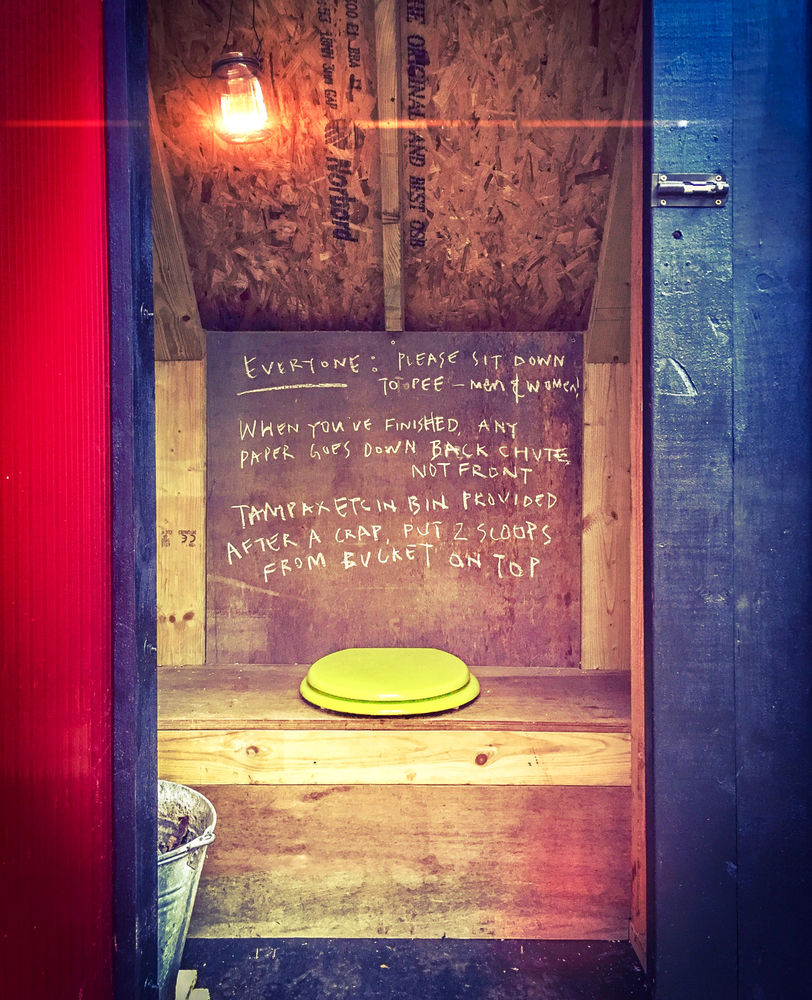 THE ORIGINAL AND BEST OSB
Norbord
EVERYONE: PLEASE SIT DOWN
TO PEE – MEN & WOMEN!
WHEN YOU'VE FINISHED, ANY
PAPER GOES DOWN BACK CHUTE,
NOT FRONT
TAMPAX ETC IN BIN PROVIDED
AFTER A CRAP, PUT 2 SCOOPS
FROM BUCKET ON TOP
CE